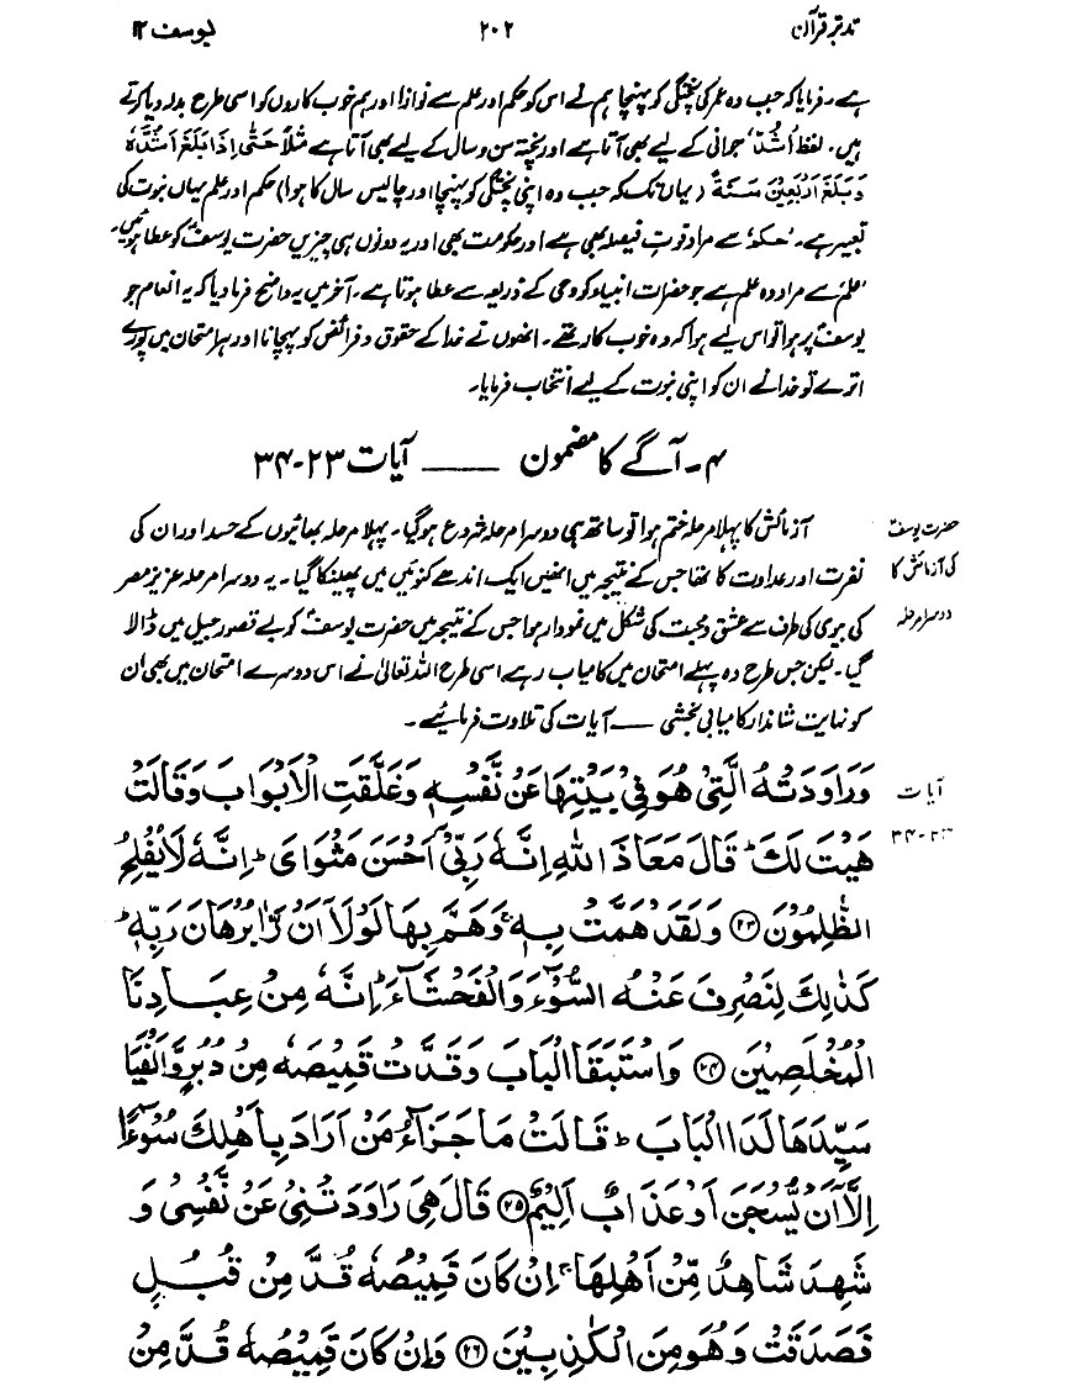 تدبر قرآن ۲۰۲ یوسف ۱۲
ہے۔ فرمایا کہ جب وہ عمر کی پختگی کو پہنچا ہم نے اس کو حکم اور علم سے نوازا اور ہم خوب کاروں کو اسی طرح بدلہ دیا کرتے
ہیں۔ لفظ 'اَشُدّ' جوانی کے لیے بھی آتا ہے اور پختہ سن و سال کے لیے بھی آتا ہے مثلاً حَتّٰی اِذَا بَلَغَ اَشُدَّہٗ
وَبَلَغَ اَرْبَعِیْنَ سَنَۃً (یہاں تک کہ جب وہ اپنی پختگی کو پہنچا اور چالیس سال کا ہوا) حکم اور علم یہاں نبوت کی
تعبیر ہے۔ 'حکم' سے مراد قوتِ فیصلہ بھی ہے اور حکومت بھی اور یہ دونوں ہی چیزیں حضرت یوسفؑ کو عطا ہوئیں۔
'علم' سے مراد وہ علم ہے جو حضرات انبیاء کو وحی کے ذریعہ سے عطا ہوتا ہے۔ آخر میں یہ واضح فرما دیا کہ یہ انعام جو
یوسفؑ پر ہوا تو اس لیے ہوا کہ وہ خوب کار تھے۔ انھوں نے خدا کے حقوق و فرائض کو پہچانا اور ہر امتحان میں پورے
اترے تو خدا نے ان کو اپنی نبوت کے لیے انتخاب فرمایا۔
۴۔ آگے کا مضمون ــــــ آیات ۲۳-۳۴
حضرت یوسفؑ
کی آزمائش کا
دوسرا مرحلہ
آزمائش کا پہلا مرحلہ ختم ہوا تو ساتھ ہی دوسرا مرحلہ شروع ہو گیا۔ پہلا مرحلہ بھائیوں کے حسد اور ان کی
نفرت اور عداوت کا تھا جس کے نتیجہ میں انھیں ایک اندھے کنوئیں میں پھینکا گیا۔ یہ دوسرا مرحلہ عزیز مصر
کی بیوی کی طرف سے عشق و محبت کی شکل میں نمودار ہوا جس کے نتیجہ میں حضرت یوسفؑ کو بے قصور جیل میں ڈالا
گیا۔ لیکن جس طرح وہ پہلے امتحان میں کامیاب رہے اسی طرح اللہ تعالیٰ نے اس دوسرے امتحان میں بھی ان
کو نہایت شاندار کامیابی بخشی ــــ آیات کی تلاوت فرمائیے۔
آیات
۲۳-۳۴
وَرَاوَدَتْهُ الَّتِيْ هُوَ فِيْ بَيْتِهَا عَنْ نَّفْسِهٖ وَغَلَّقَتِ الْاَبْوَابَ وَقَالَتْ
هَيْتَ لَكَ ؕ قَالَ مَعَاذَ اللهِ اِنَّهٗ رَبِّيْٓ اَحْسَنَ مَثْوَايَ ؕ اِنَّهٗ لَا يُفْلِحُ
الظّٰلِمُوْنَ ﴿۲۳﴾ وَلَقَدْ هَمَّتْ بِهٖ ۚ وَهَمَّ بِهَا لَوْلَآ اَنْ رَّاٰ بُرْهَانَ رَبِّهٖ ؕ
كَذٰلِكَ لِنَصْرِفَ عَنْهُ السُّوْٓءَ وَالْفَحْشَآءَ ؕ اِنَّهٗ مِنْ عِبَادِنَا
الْمُخْلَصِيْنَ ﴿۲۴﴾ وَاسْتَبَقَا الْبَابَ وَقَدَّتْ قَمِيْصَهٗ مِنْ دُبُرٍ وَّاَلْفَيَا
سَيِّدَهَا لَدَا الْبَابِ ؕ قَالَتْ مَا جَزَآءُ مَنْ اَرَادَ بِاَهْلِكَ سُوْٓءًا
اِلَّآ اَنْ يُّسْجَنَ اَوْ عَذَابٌ اَلِيْمٌ ﴿۲۵﴾ قَالَ هِيَ رَاوَدَتْنِيْ عَنْ نَّفْسِيْ وَ
شَهِدَ شَاهِدٌ مِّنْ اَهْلِهَا ۚ اِنْ كَانَ قَمِيْصُهٗ قُدَّ مِنْ قُبُلٍ
فَصَدَقَتْ وَهُوَ مِنَ الْكٰذِبِيْنَ ﴿۲۶﴾ وَاِنْ كَانَ قَمِيْصُهٗ قُدَّ مِنْ